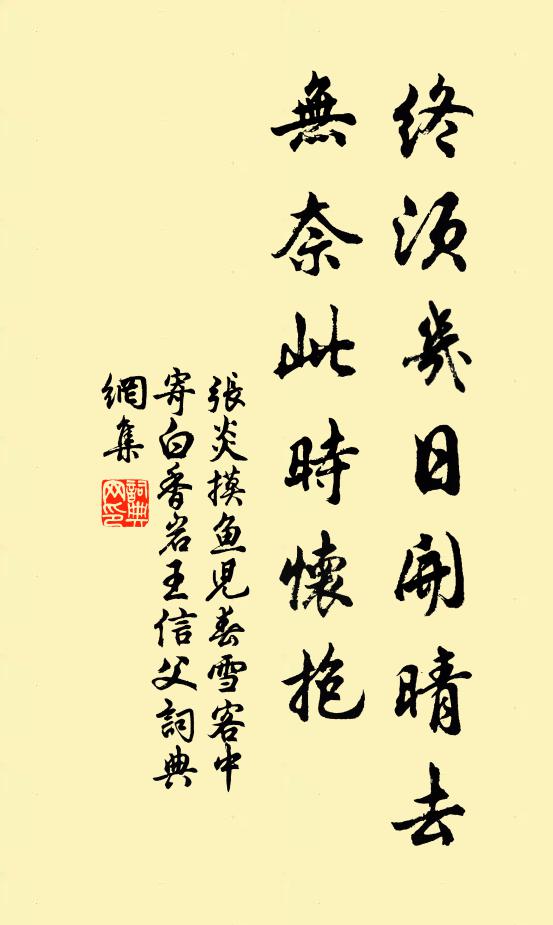 終須幾日開晴去
無奈此時懷抱
張炎摸魚児春雪客中
寄白香岩王信父詞典
網集
詞典
网印